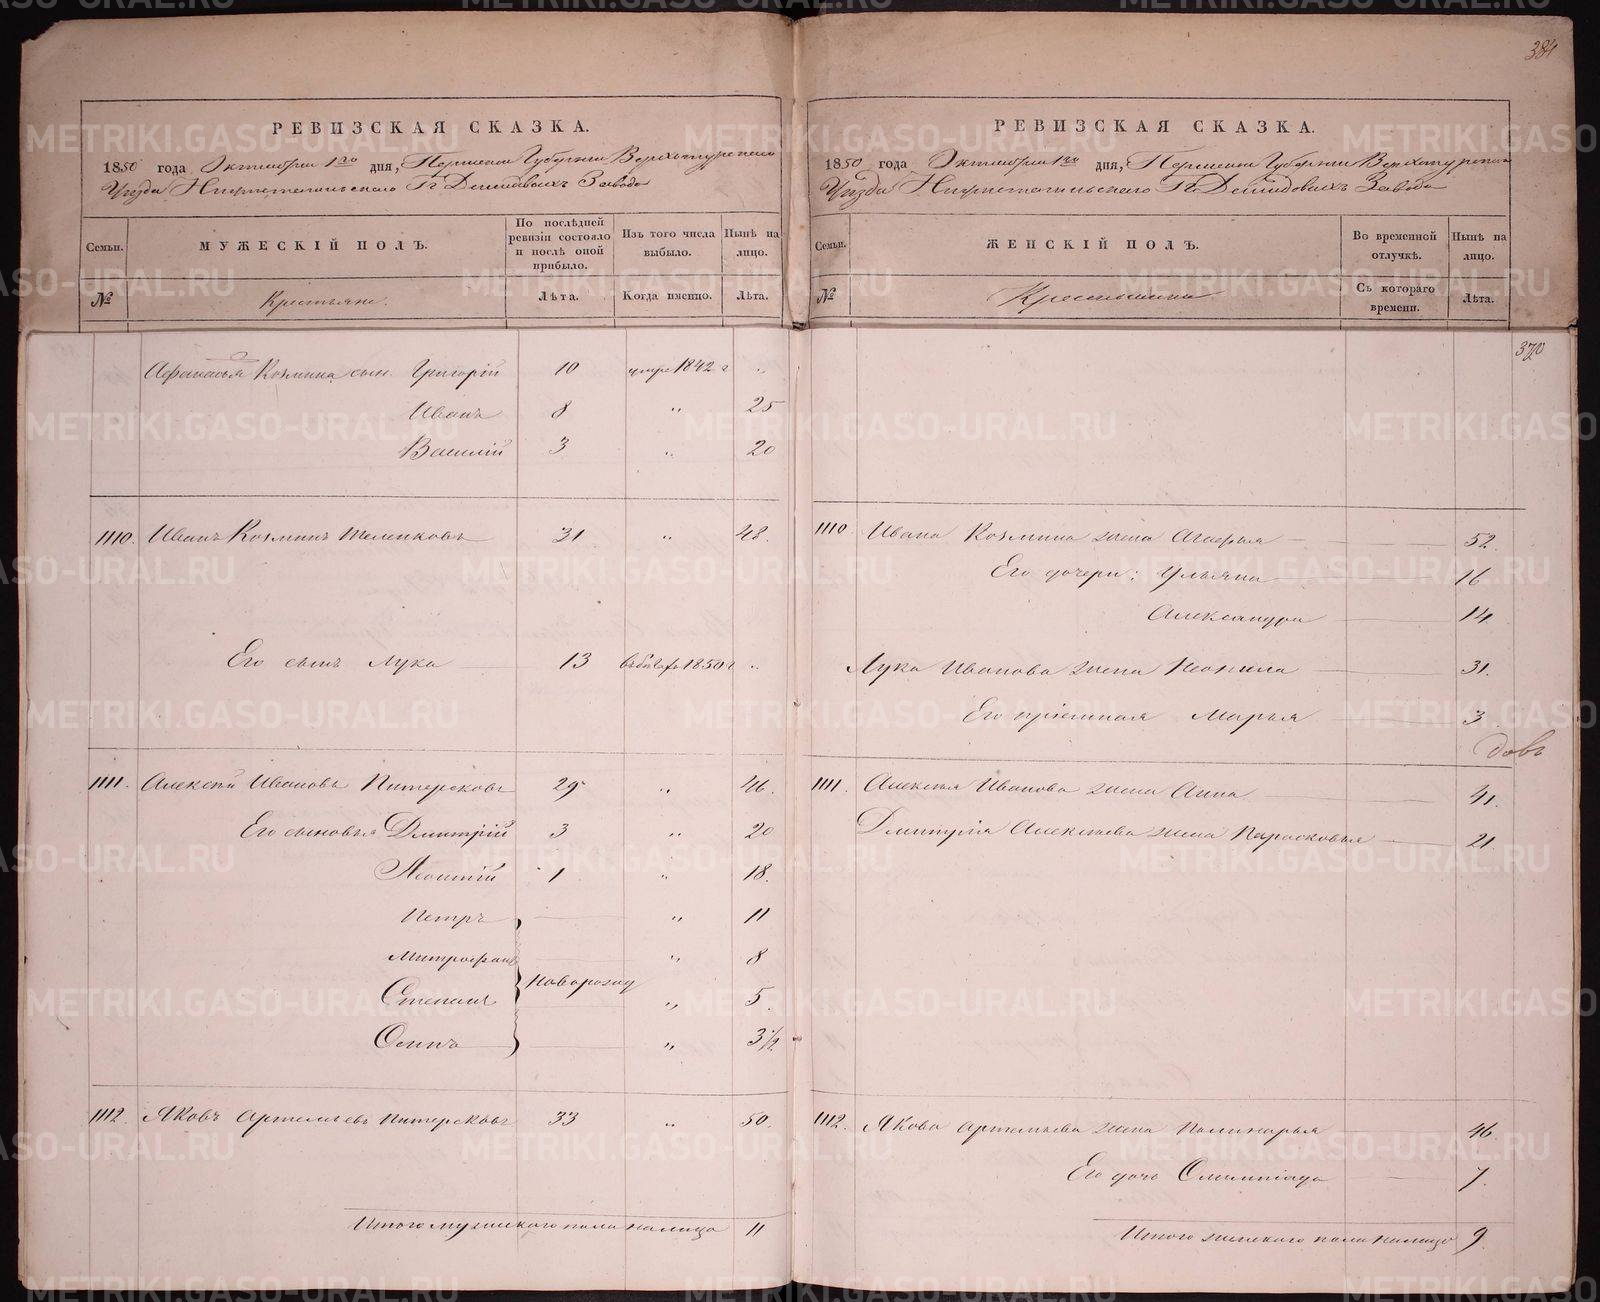 384
РЕВИЗСКАЯ СКАЗКА.
1850 года Октября 1го дня, Пермской Губернии Верхотурскаго
Уѣзда Нижнетагильскаго Гг. Демидовыхъ Завода
Семьи. МУЖЕСКІЙ ПОЛЪ. По послѣдней ревизіи состояло и послѣ оной прибыло. Изъ того числа выбыло. Нынѣ на лицо.
№ Крестьяне. Лѣта. Когда именно. Лѣта.
Афанасья Козмина сын. Григорій 10 умре 1842 г "
Иванъ 8 " 25
Василій 3 " 20
1110. Иванъ Козминъ 31 " 48.
Его сынъ Лука 13 1850 г "
1111. Алексѣй Ивановъ Питерсковъ 29 " 46.
Его сыновья Дмитрій 3 " 20
Леонтій 1 " 18.
Петръ " 11
Митрофанъ " 8
Новорожд
Степанъ " 5.
Осипъ " 3 1/2
1112. Яковъ Артемьевъ Питерсковъ 33 " 50.
Итого мужескаго пола налицо 11
РЕВИЗСКАЯ СКАЗКА.
1850 года Октября 1го дня, Пермской Губернии Верхотурскаго
Уѣзда Нижнетагильскаго Гг. Демидовыхъ Завода
Семьи. ЖЕНСКІЙ ПОЛЪ. Во временной отлучкѣ. Нынѣ на лицо.
№ Крестьянки Съ котораго времени. Лѣта.
370
1110. Ивана Козмина жена Агафья 52.
Его дочери: Ульяна 16
Александра 14.
Лука Иванова жена Неонила 31.
Его пріемная Марья 3
довъ
1111. Алексѣя Иванова жена Анна 41.
Дмитрія Алексѣева жена Парасковья 21
1112. Якова Артемьева жена 46.
Его дочь Олимпіада 7.
Итого женскаго пола налицо 9.
METRIKI.GASO-URAL.RU